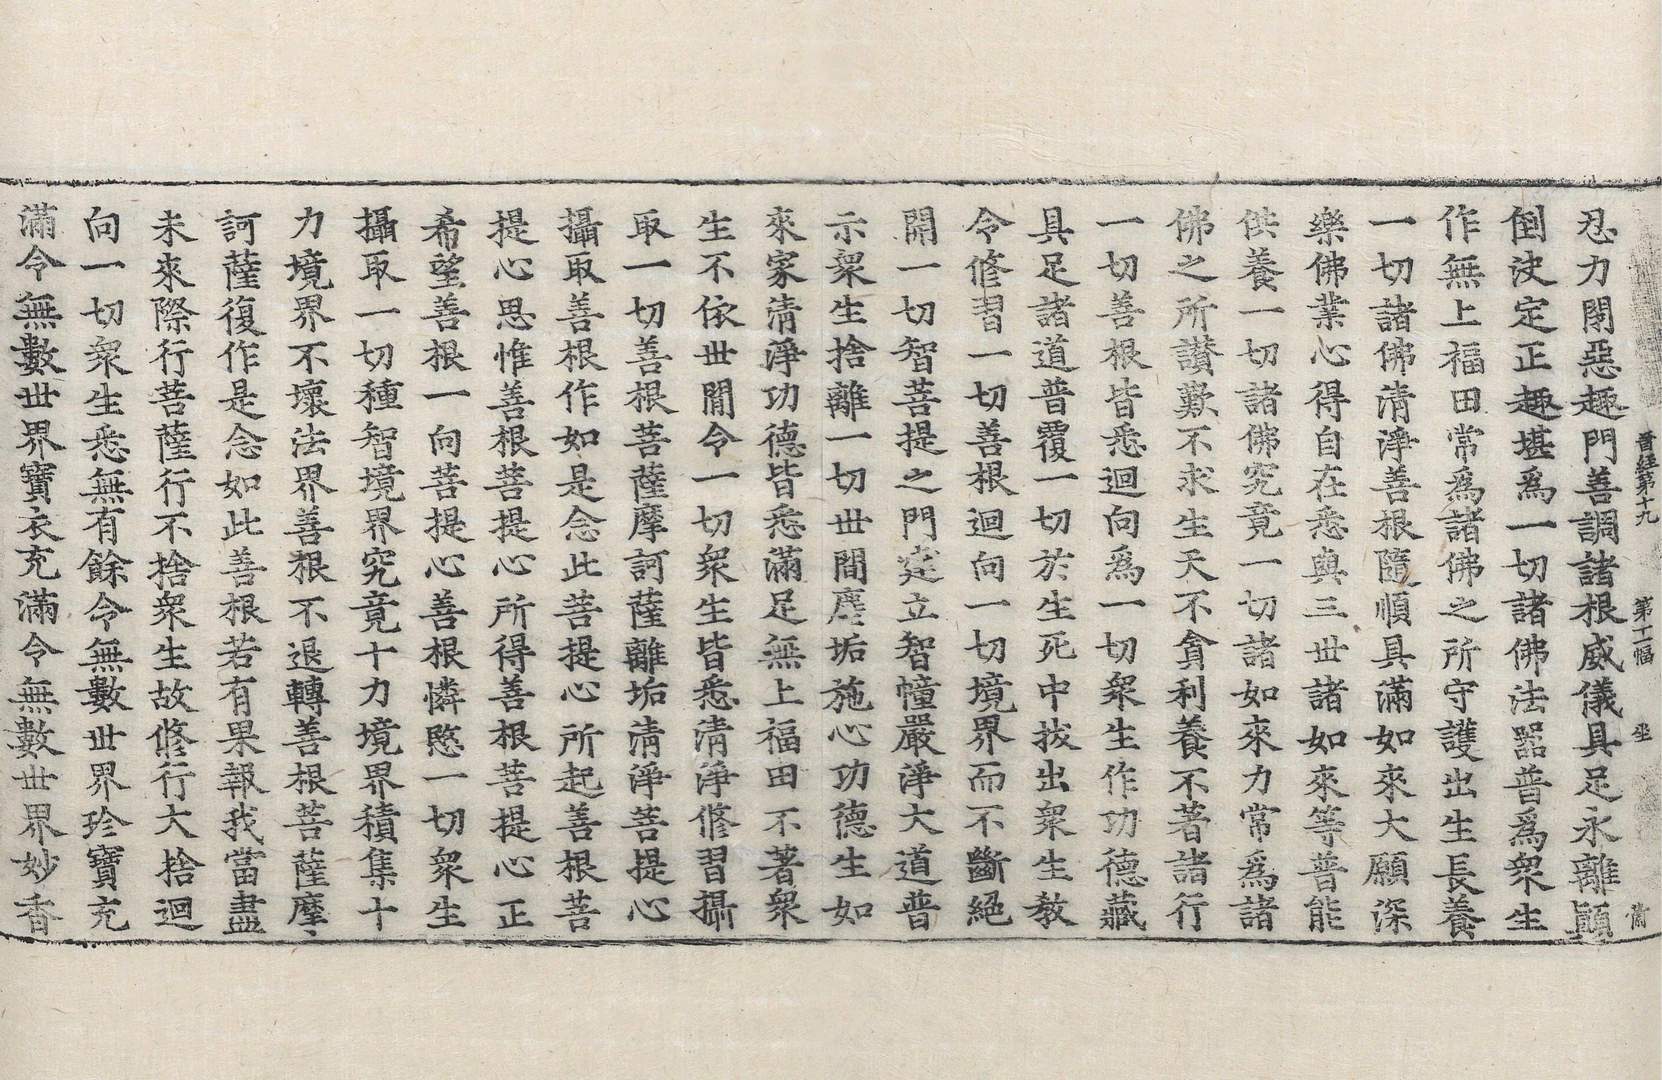 晋経第十九 第十一幅 坐 肅
忍力閉惡趣門善調諸根威儀具足永離顚
倒決定正趣堪爲一切諸佛法器普爲衆生
作無上福田常爲諸佛之所守護出生長養
一切諸佛清淨善根隨順具滿如來大願深
樂佛業心得自在悉與三世諸如來等普能
供養一切諸佛究竟一切諸如來力常爲諸
佛之所讃歎不求生天不貪利養不著諸行
一切善根皆悉迴向爲一切衆生作功德藏
具足諸道普覆一切於生死中拔出衆生教
令修習一切善根迴向一切境界而不斷絕
開一切智菩提之門㝎立智幢嚴淨大道普
示衆生捨離一切世間塵垢施心功德生如
來家清淨功德皆悉滿足無上福田不著衆
生不依世間令一切衆生皆悉清淨修習攝
取一切善根菩薩摩訶薩離垢清淨菩提心
攝取善根作如是念此菩提心所起善根菩
提心思惟善根菩提心所得善根菩提心正
希望善根一向菩提心善根憐愍一切衆生
攝取一切種智境界究竟十力境界積集十
力境界不壞法界善根不退轉善根菩薩摩
訶薩復作是念如此善根若有果報我當盡
未來際行菩薩行不捨衆生故修行大捨迴
向一切衆生悉無有餘令無數世界珍寶充
滿令無數世界寶衣充滿令無數世界妙香